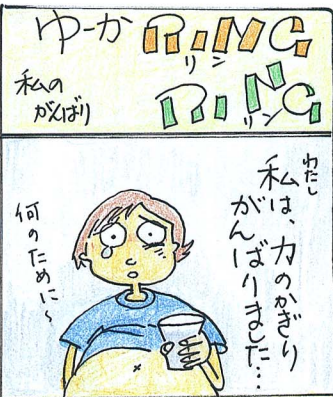 ゆーか RING
リン
RING
リン
私の
がんばり
わたし
私は、力のかぎり
がんばりました…
何のために〜